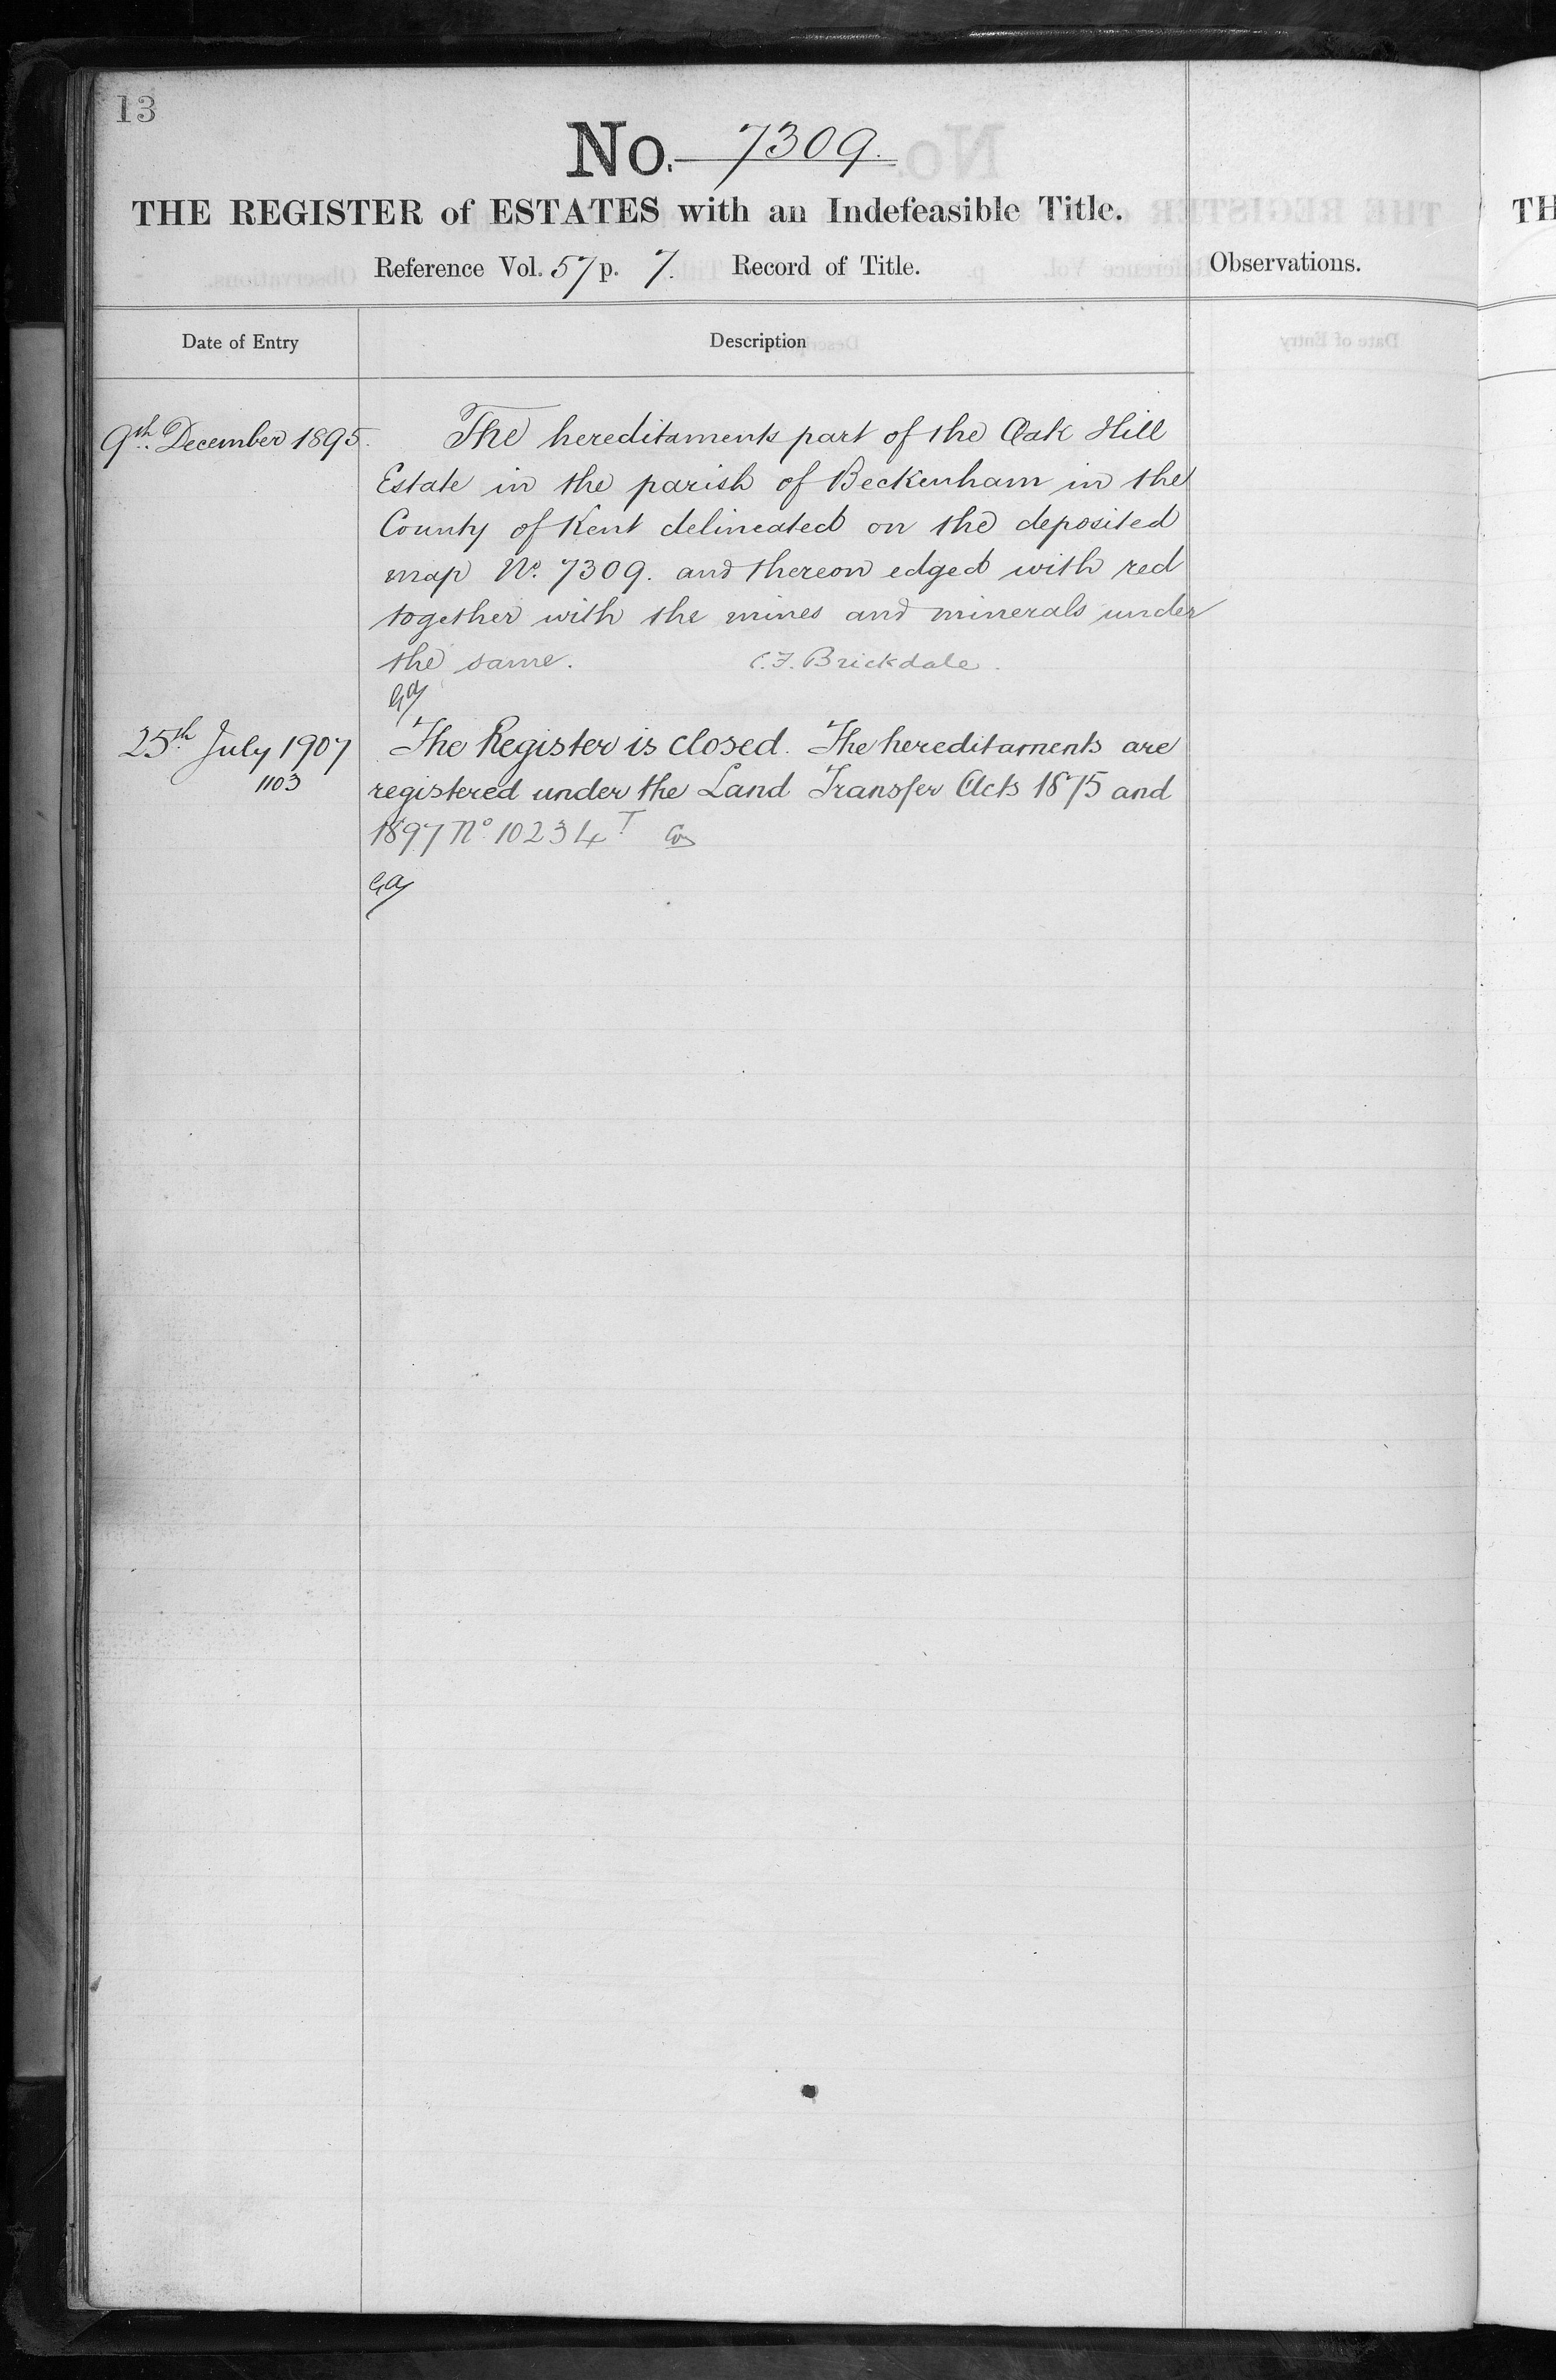 13
No. 7309.
THE REGISTER of ESTATES with an Indefeasible Title.
Reference Vol. 57 p. 7. Record of Title.
Observations.
Date of Entry
Description
9th. December 1895.
The hereditaments part of the Oak Hill
Estate in the parish of Beckenham in the
County of Kent delineated on the deposited
map No. 7309. and thereon edged with red
together with the mines and minerals under
the same. C.F. Brickdale.
25th. July 1907
1103
The Register is closed. The hereditaments are
registered under the Land Transfer Acts 1875 and
1897 No. 10234 T
TH